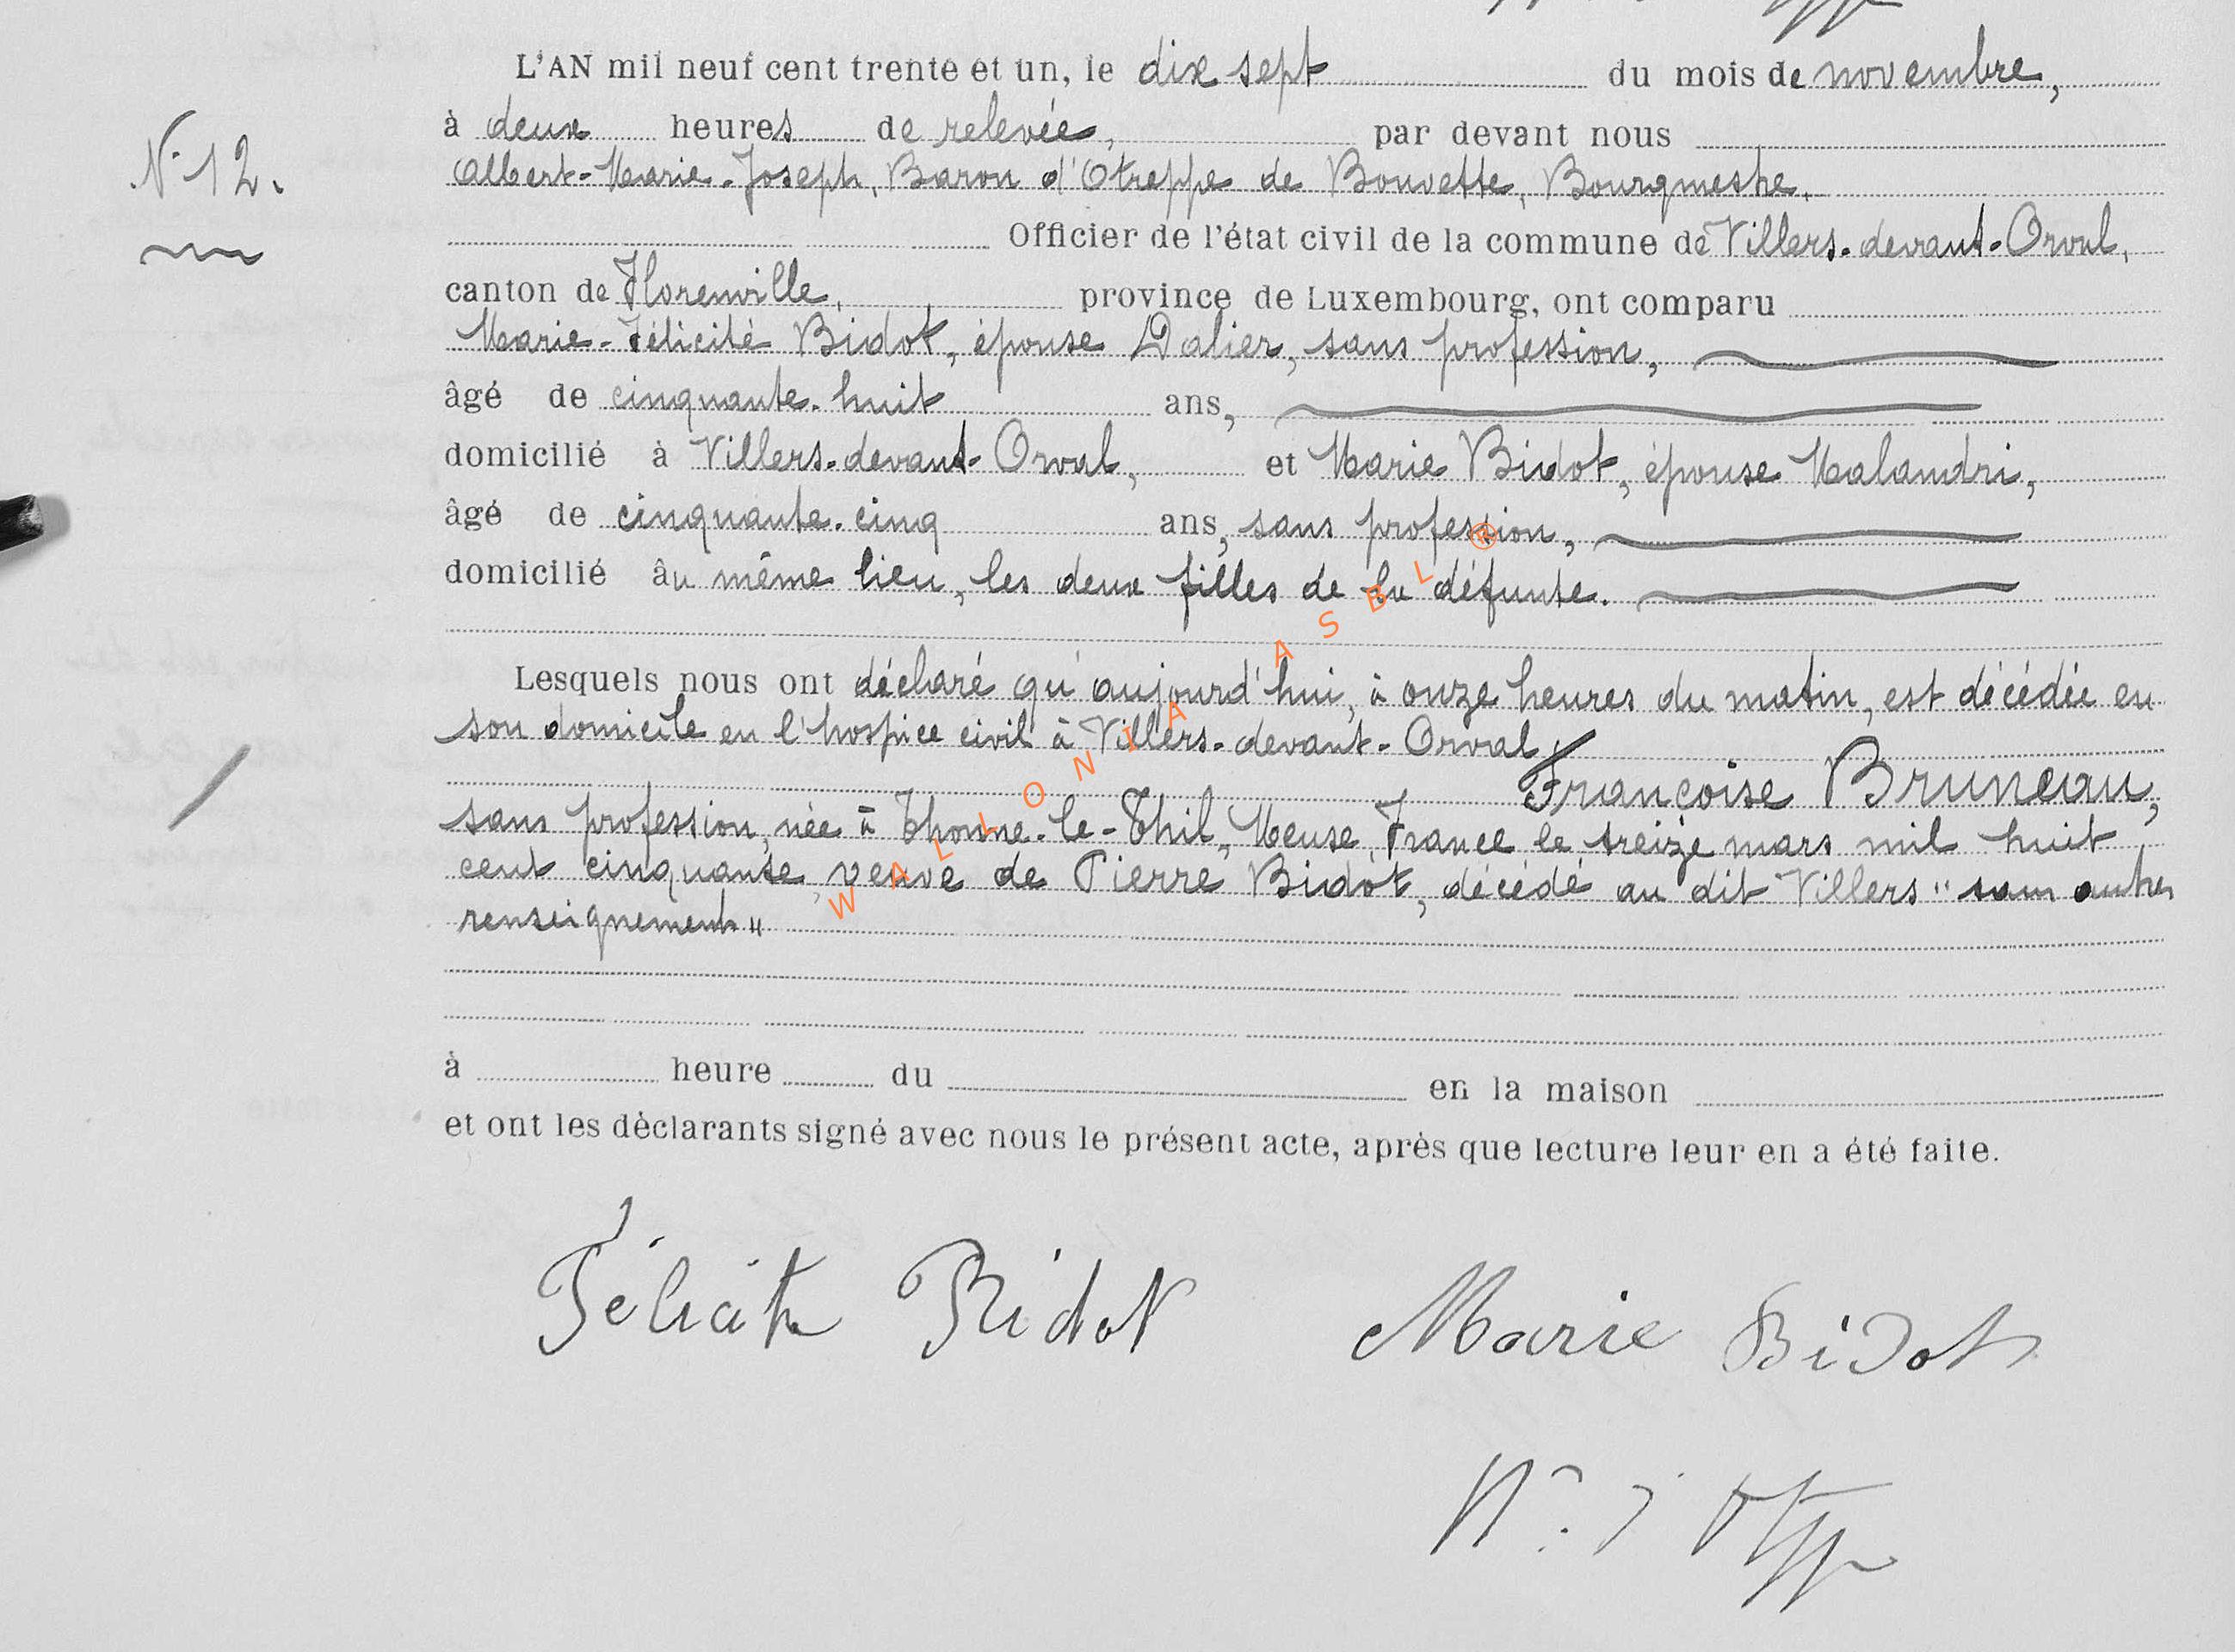 L'AN mil neuf cent trente et un, le dix sept du mois de novembre,
à deux heures de relevée, par devant nous
N. 12.
Albert-Marie-Joseph, Baron d'Otreppe de Bouvette, Bourgmestre,
Officier de l'état civil de la commune de Villers-devant-Orval,
canton de Florenville, province de Luxembourg, ont comparu
Marie-Félicité Bidot, épouse Dalier, sans profession,
âgé de cinquante-huit ans,
domicilié à Villers-devant-Orval, et Marie Bidot, épouse Malandri,
âgé de cinquante-cinq ans, sans profession,
domicilié âu même lieu, les deux filles de la défunte.
Lesquels nous ont déclaré qu'aujourd'hui, à onze heures du matin, est décédée en
son domicile en l'hospice civil à Villers-devant-Orval
Françoise Bruneau,
sans profession, née à Thonne-le-Thil, Meuse, France, le treize mars mil huit
cent cinquante, veuve de Pierre Bidot, décédé au dit Villers "sans autres
renseignements"
WALLONIA ASBL ®
à heure du en la maison
et ont les déclarants signé avec nous le présent acte, après que lecture leur en a été faite.
Félicité Bidot Marie Bidot